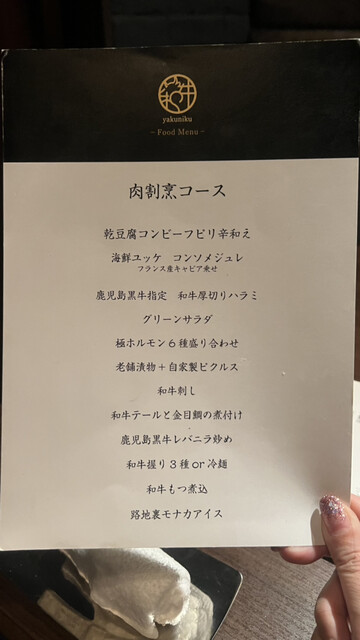 yakuniku
~ Food Menu ~
肉割烹コース
乾豆腐コンビーフピリ辛和え
海鮮ユッケ コンソメジュレ
フランス産キャビア乗せ
鹿児島黒牛指定 和牛厚切りハラミ
グリーンサラダ
極ホルモン6種盛り合わせ
老舗漬物+自家製ピクルス
和牛刺し
和牛テールと金目鯛の煮付け
鹿児島黒牛レバニラ炒め
和牛握り3種or冷麺
和牛もつ煮込
路地裏モナカアイス